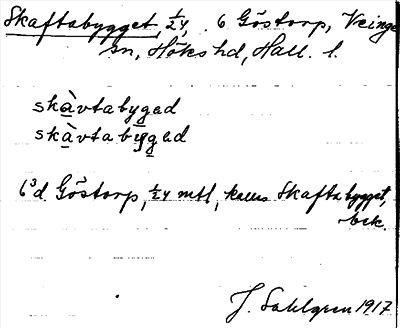 Skaftabygget, 1/24, 6 Göstorp, Veinge
sn, Höks hd, Hall. l.
skàvtabygəd
skàvtabygəd
6³d Göstorp, 1/24 mtl, kallas Skaftabygget,
bek.
J. Sahlgren 1917